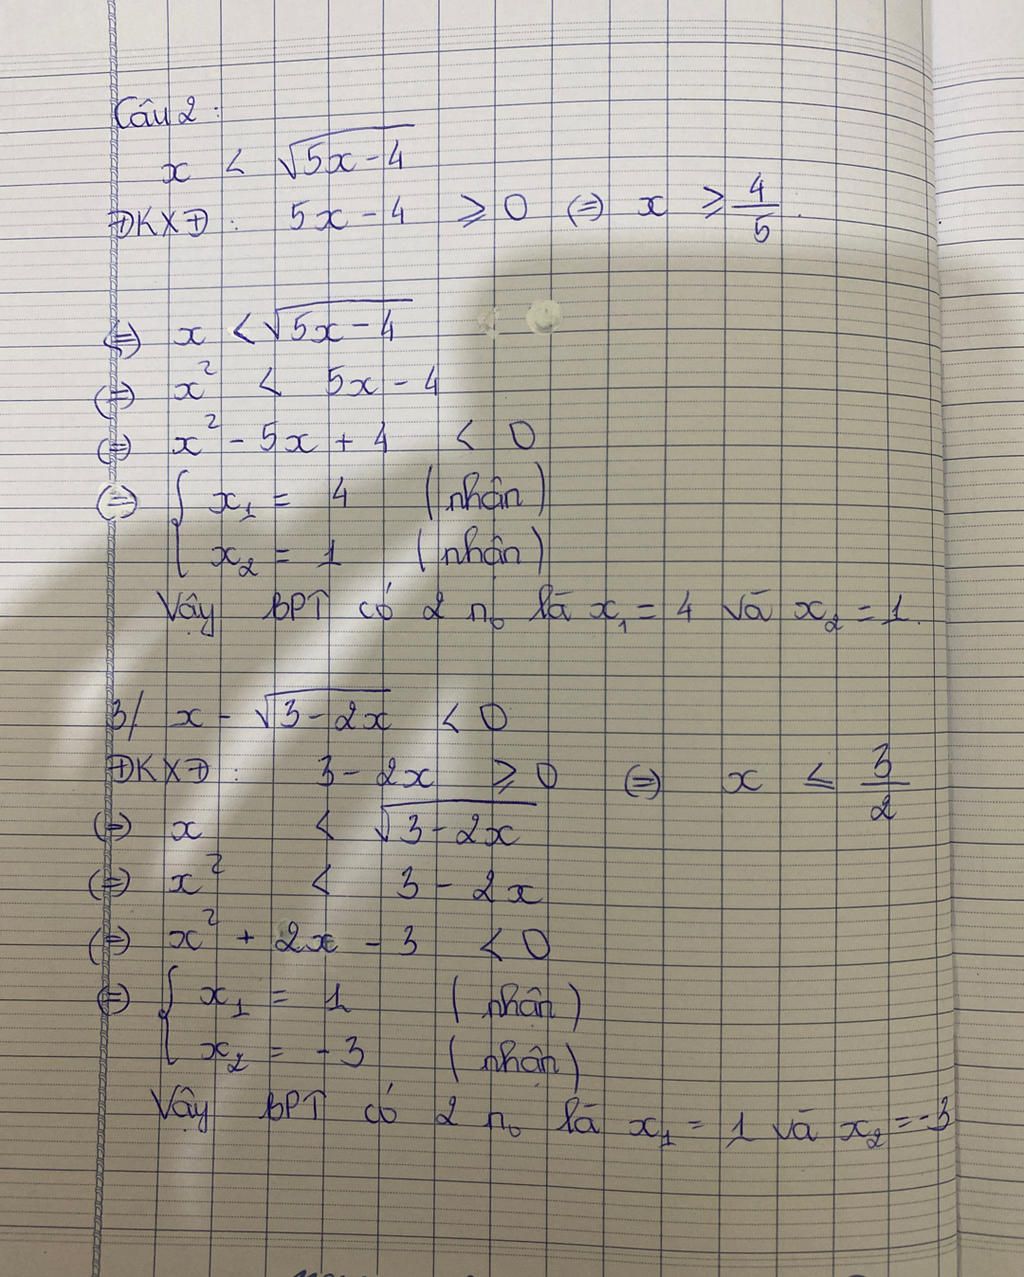 Câu 2 :
x < √(5x - 4)
ĐKXĐ : 5x - 4 ⩾ 0 (=) x ⩾ 4/5.
(=) x < √(5x - 4)
(=) x² < 5x - 4
(=) x² - 5x + 4 < 0
(=) { x₁ = 4 (nhận)
x₂ = 1 (nhận)
Vậy BPT có 2 n₀ là x₁ = 4 và x₂ = 1.
3/ x - √(3 - 2x) < 0
ĐKXĐ : 3 - 2x ⩾ 0 (=) x ≤ 3/2
(=) x < √(3 - 2x)
(=) x² < 3 - 2x
(=) x² + 2x - 3 < 0
(=) { x₁ = 1 (nhận)
x₂ = -3 (nhận)
Vậy BPT có 2 n₀ là x₁ = 1 và x₂ = -3